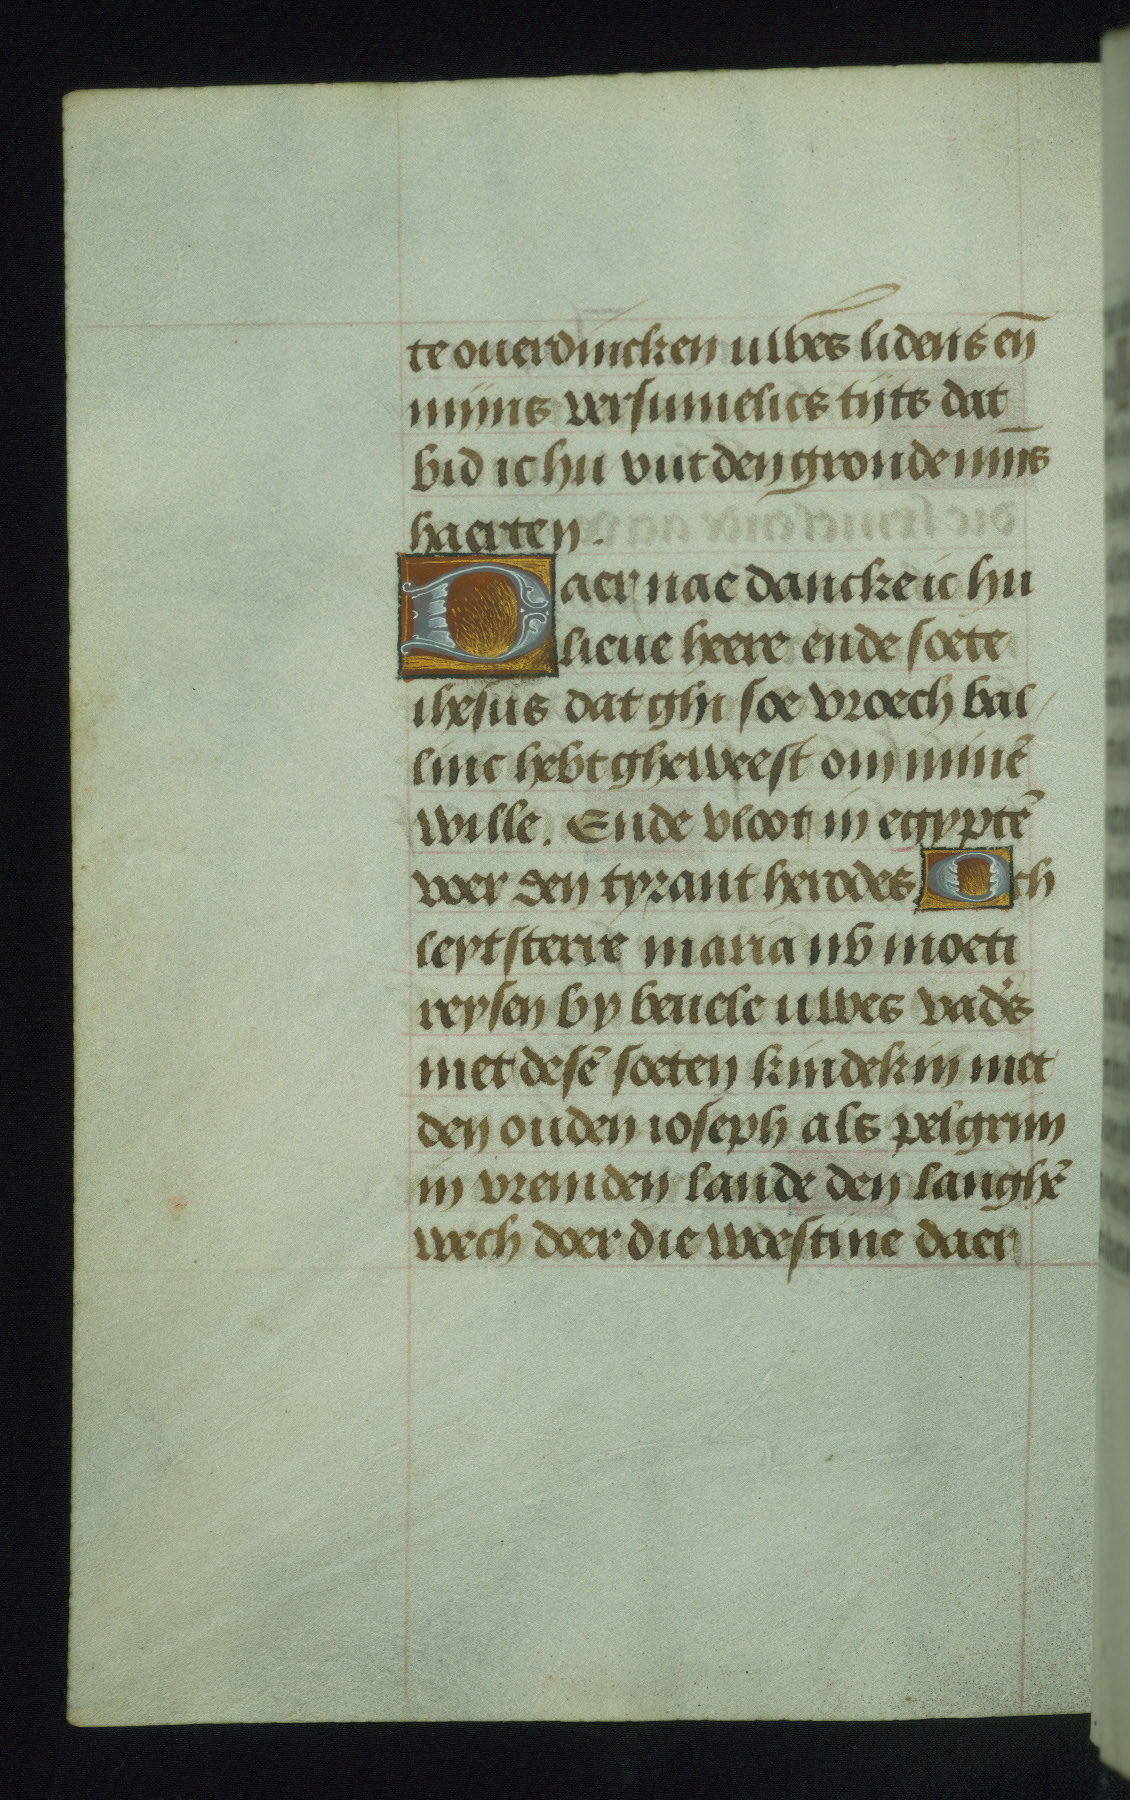 te ouerdincken uwēs lidens eñ
mijns versumelics tijts dat
bid ic hu vut den gronde mīns
haerten.
Daer nae dancke ic hu
lieue heere ende soete
ihesus dat ghi soe vroech bal/
linc hebt gheweest om minē
wille. Ende vloot in egyptē
voer den tyrant herodes Och
leytsterre maria nv moeti
reysen by beuele uwes vad's
met desē soeten kindekin met
den ouden ioseph als pelgrim
in vremden lande den langhē
wech doer die woestine daer